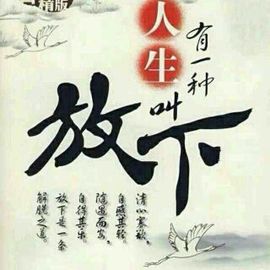 精版
人生
有一种叫
放下
清心寡欲，
自照其轮，
随遇而安，
自得其乐。
放下是一条
解脱之道。